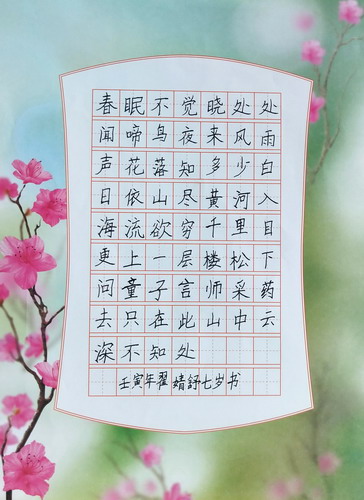 春眠不觉晓处处
闻啼鸟夜来风雨
声花落知多少白
日依山尽黄河入
海流欲穷千里目
更上一层楼松下
问童子言师采药
去只在此山中云
深不知处
壬寅年翟婧舒七岁书